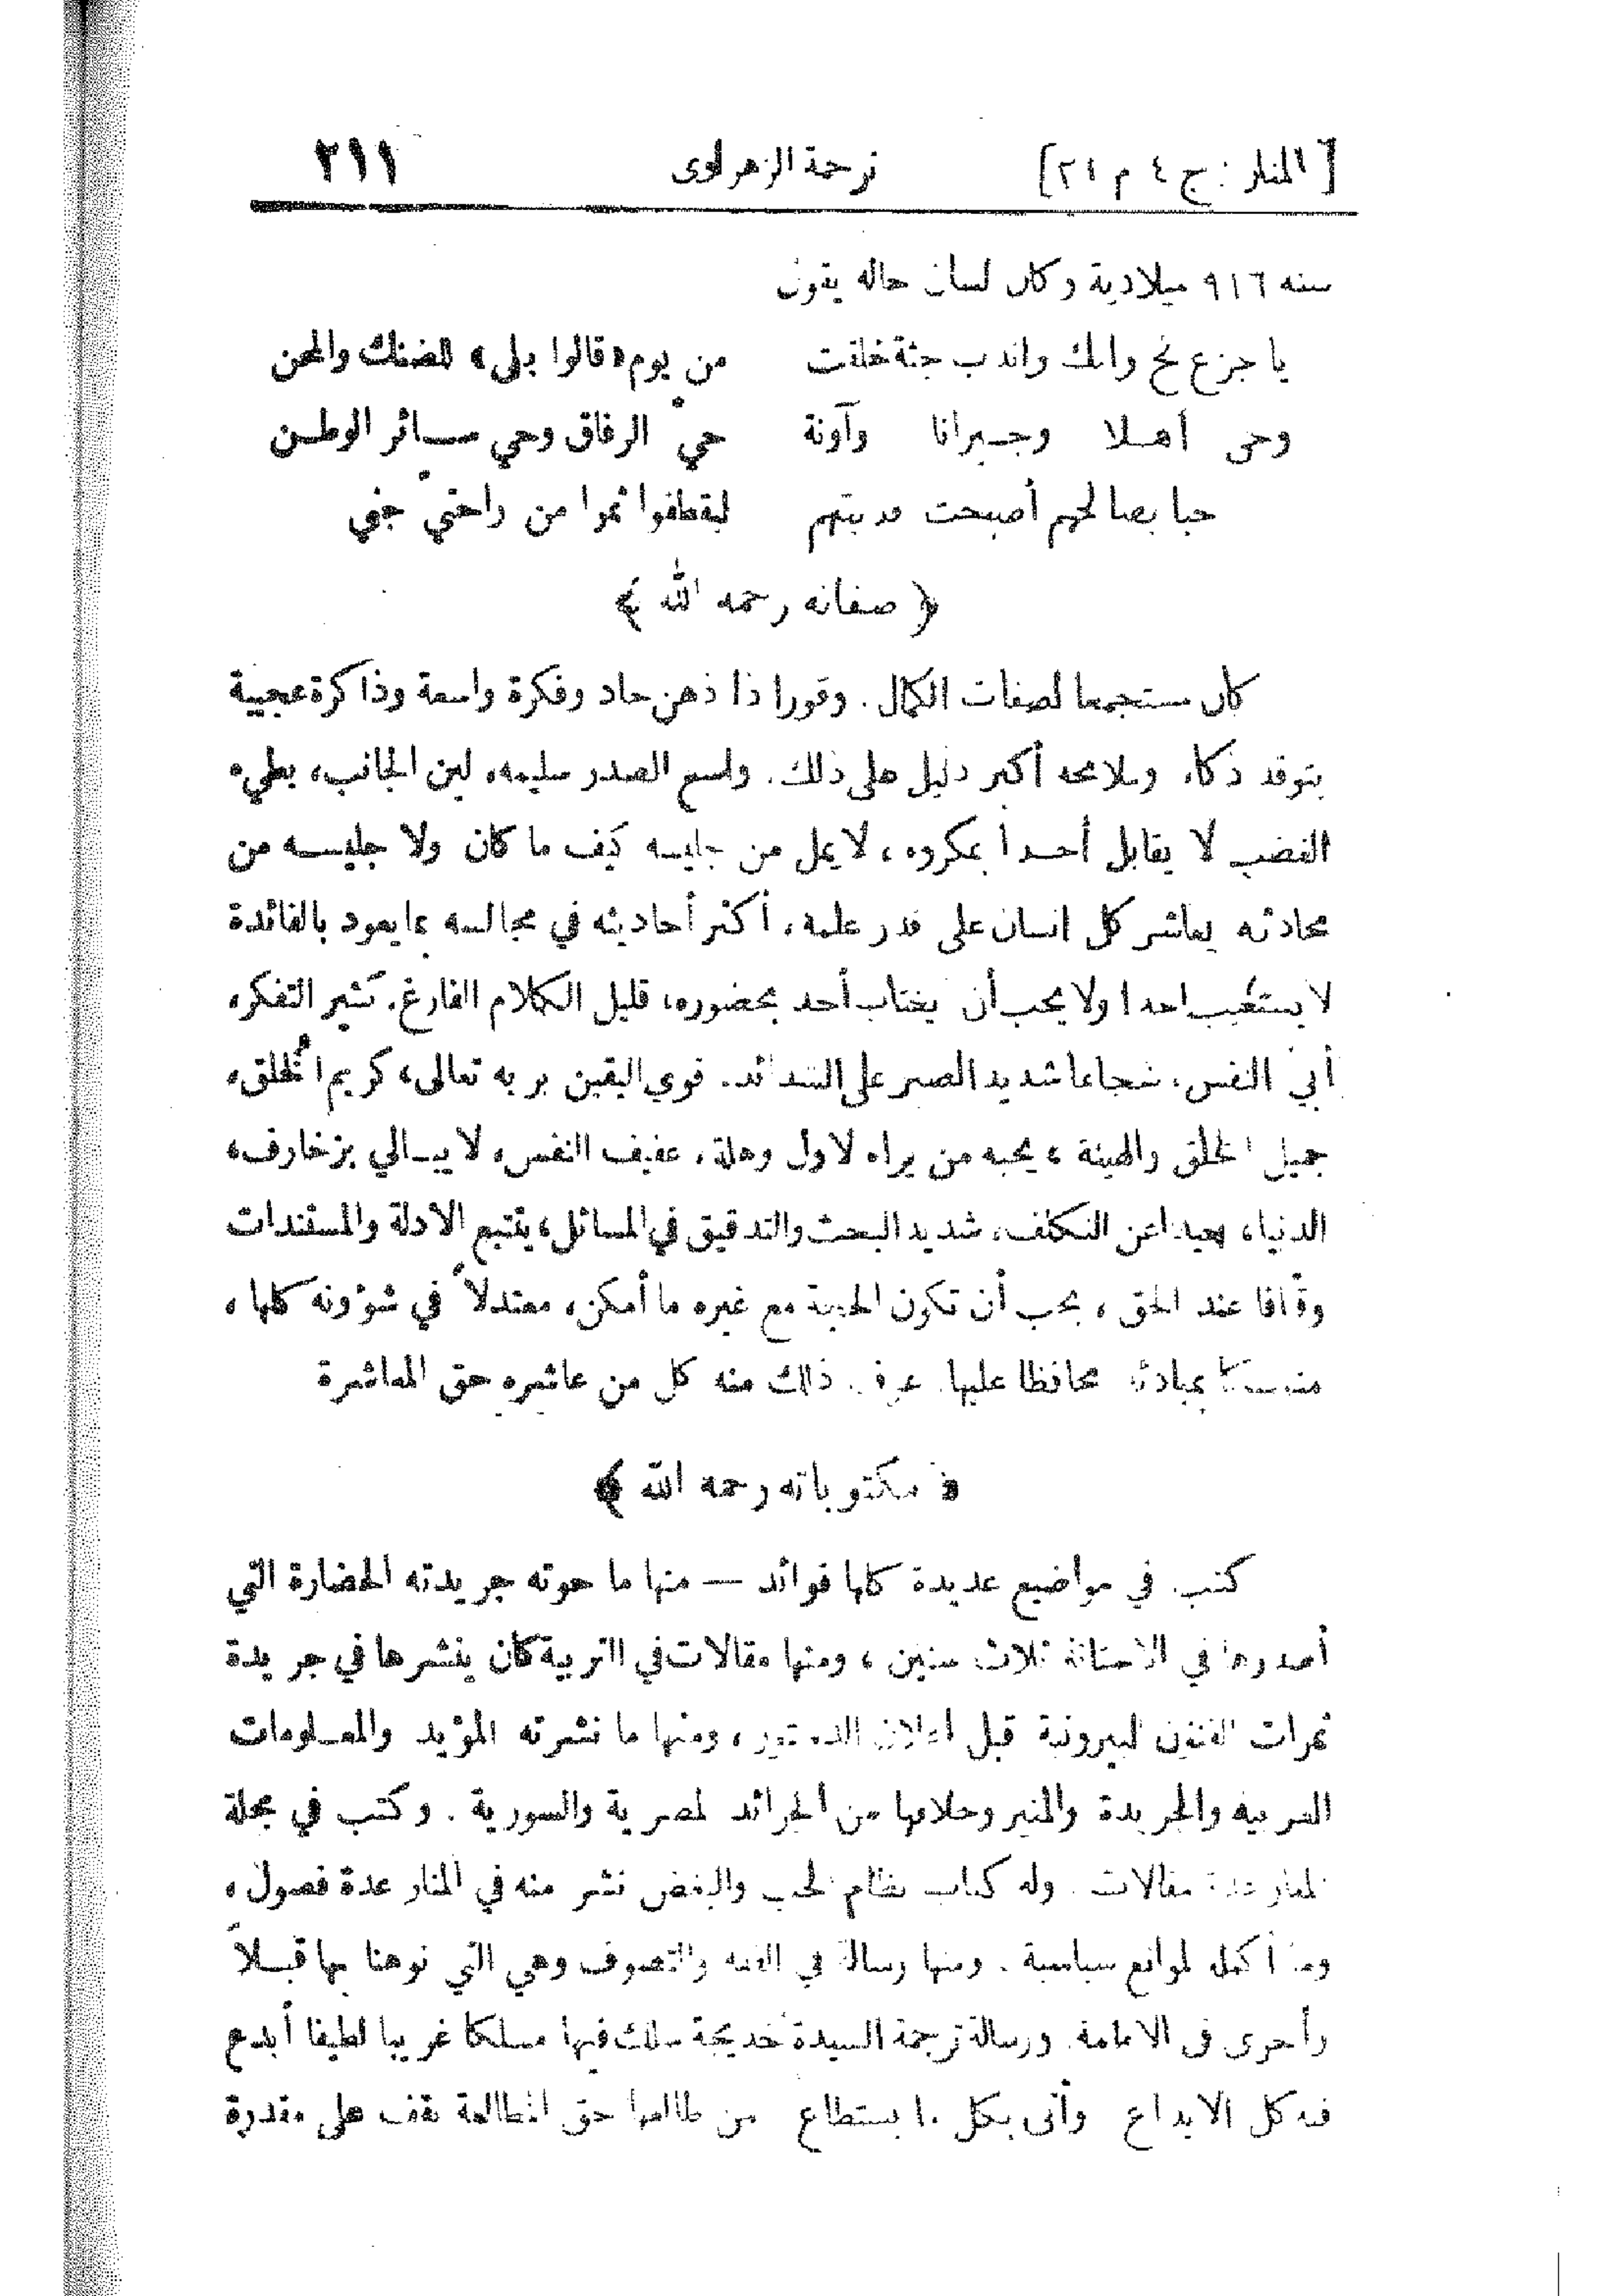 [ المنار : ج ٤ م ٢١ ] ترجمة الزهراوى ٢١١
سنه ٩١٦ ميلادية وكان لسان حاله يقول
يا جزع نح وابك واندب جثة خلقت من يوم «قالوا بلى» للضنك والمحن
وحى أهلا وجيرانا وآونة حيّ الرفاق وحي سائر الوطن
حبا بصالحهم أصبحت فديتهم ليقطفوا ثمرا من راحتيّ جني
﴿ صفاته رحمه الله ﴾
كان مستجمعا لصفات الكمال . وقورا ذا ذهن حاد وفكرة واسعة وذاكرة عجيبة
يتوقد ذكاء وملامحه أكبر دليل على ذلك. واسع الصدر سليمه، لين الجانب، بطيء
الغضب لا يقابل أحدا بمكروه ، لا يمل من جليسه كيف ما كان ولا جليسه من
محادثته يعاشر كل انسان على قدر علمه، أكثر أحاديثه في مجالسه بما يعود بالفائدة
لا يستغيب احدا ولا يحب أن يغتاب أحد بحضوره، قليل الكلام الفارغ. كثير التفكر،
أبيّ النفس، شجاعا شديد الصبر على الشدائد. قوي اليقين بربه تعالى، كريم الخُلق،
جميل الخلق والهيئة ، يحبه من يراه لاول وهلة، عفيف النفس، لا يبالي بزخارف،
الدنيا، بعيدا عن التكلف، شديد البحث والتدقيق في المسائل، يتتبع الادلة والمستندات
وقافا عند الحق ، يحب أن تكون الحجة مع غيره ما أمكن، معتدلاً في شؤونه كلها ،
متمسكا بمبادئه محافظا عليها عرف ذلك منه كل من عاشره حق المعاشرة
﴿ مكتوباته رحمه الله ﴾
كتب في مواضيع عديدة كلها فوائد — منها ما حوته جريدته الحضارة التي
أصدرها في الاستانة ثلاث سنين ، ومنها مقالات في التربية كان ينشرها في جريدة
ثمرات الفنون البيروتية قبل اعلان الدستور ، ومنها ما نشرته المؤيد والمعلومات
العربيه والجريدة والمنير وخلافها من الجرائد المصرية والسورية . وكتب في مجلة
المنار عدة مقالات . وله كتاب نظام الحب والبغض نشر منه في المنار عدة فصول ،
وما أكمل لموانع سياسية . ومنها رسالة في الفقه والتصوف وهي التي نوهنا بها قبلاً
وأخرى فى الامامة. ورسالة ترجمة السيدة خديجة سلك فيها مسلكا غريبا لطيفا أبدع
فيه كل الابداع وأتى بكل ما يستطاع من طالعها حق المطالعة يقف على مقدرة